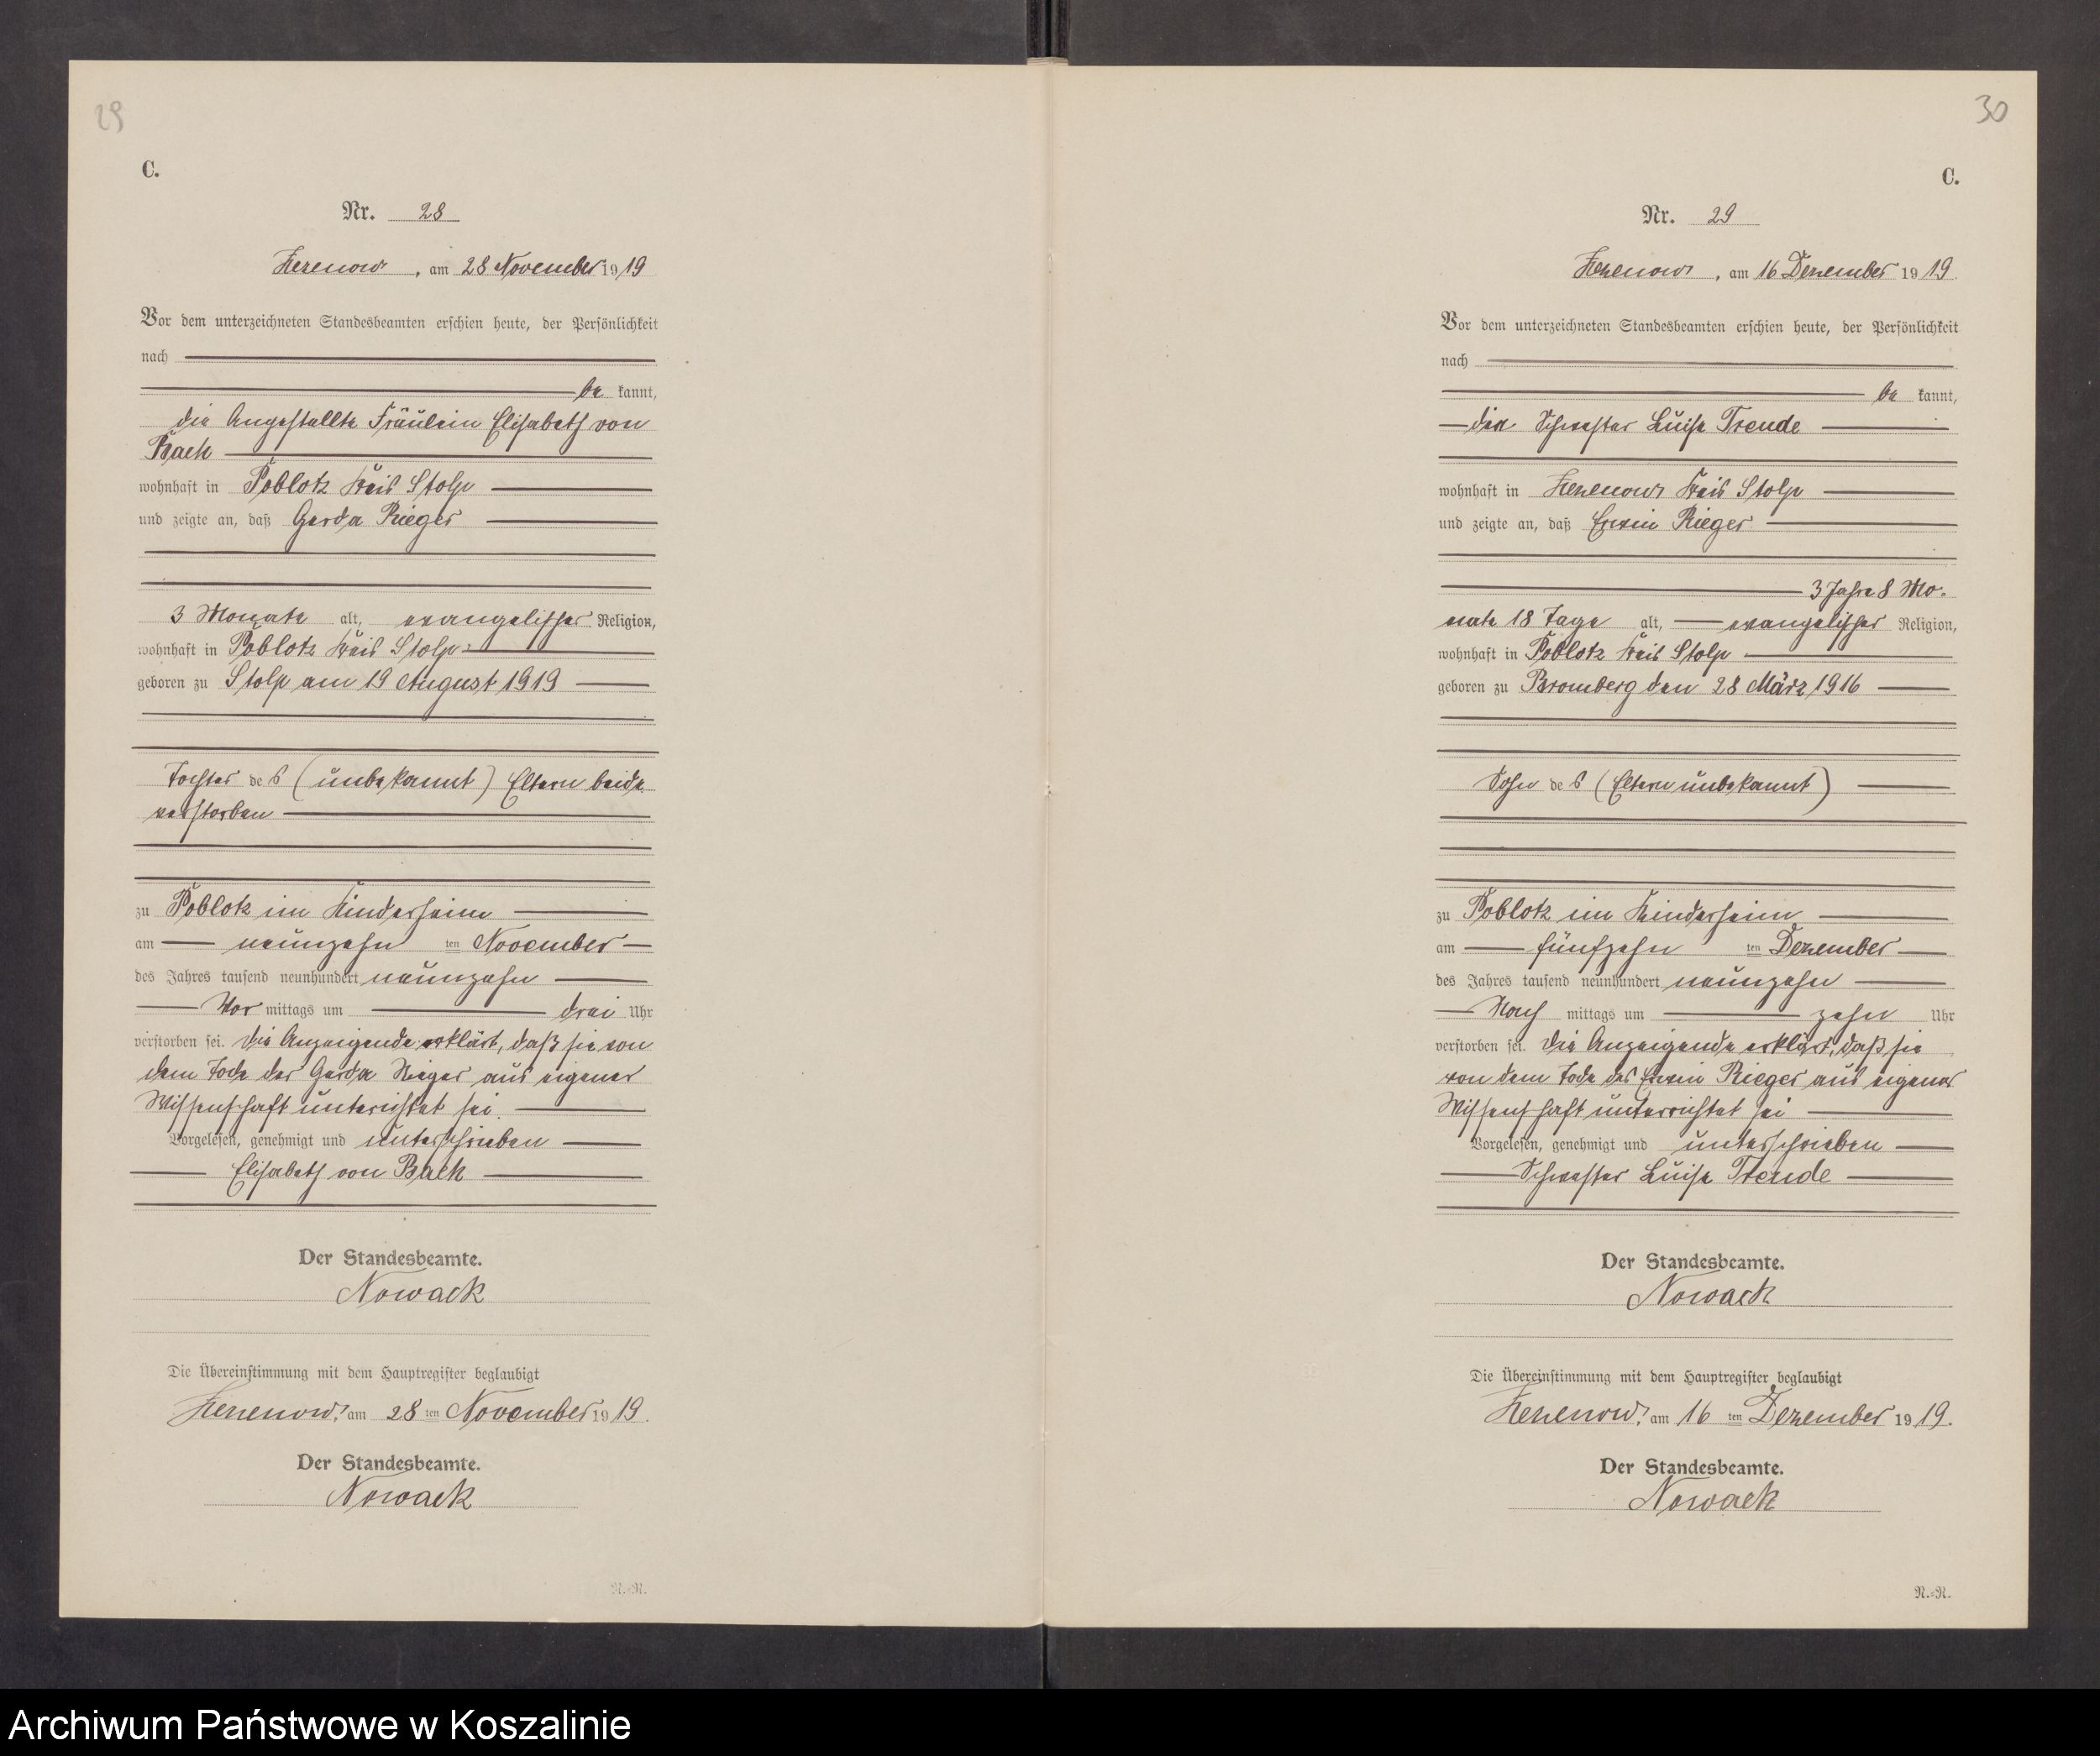 29
C.
Nr. 28
Zezenow, am 28 November 1919
Vor dem unterzeichneten Standesbeamten erschien heute, der Persönlichkeit
nach
be kannt,
die Angestellte Fräulein Elisabeth von
Back
wohnhaft in Poblotz Kreis Stolp
und zeigte an, daß Gerda Rieger
3 Monate alt, evangelischer Religion,
wohnhaft in Poblotz Kreis Stolp
geboren zu Stolp am 19 August 1919
Tochter des (unbekannt) Eltern beide
verstorben
zu Poblotz im Kinderheim
am neunzehn ten November
des Jahres tausend neunhundert neunzehn
Vor mittags um drei Uhr
verstorben sei. Die Anzeigende erklärt, daß sie von
dem Tode der Gerda Rieger aus eigener
Wissenschaft unterrichtet sei.
Vorgelesen, genehmigt und unterschrieben
Elisabeth von Back
Der Standesbeamte.
Nowack
Die Übereinstimmung mit dem Hauptregister beglaubigt
Zezenow, am 28 ten November 1919.
Der Standesbeamte.
Nowack
N.-R.
30
C.
Nr. 29
Zezenow, am 16 Dezember 1919.
Vor dem unterzeichneten Standesbeamten erschien heute, der Persönlichkeit
nach
be kannt,
die Schwester Luise Trende
wohnhaft in Zezenow Kreis Stolp
und zeigte an, daß Erwin Rieger
3 Jahre 8 Mo-
nate 18 Tage alt, evangelischer Religion,
wohnhaft in Poblotz Kreis Stolp
geboren zu Bromberg den 28 März 1916
Sohn des (Eltern unbekannt)
zu Poblotz im Kinderheim
am fünfzehn ten Dezember
des Jahres tausend neunhundert neunzehn
Nach mittags um zehn Uhr
verstorben sei. Die Anzeigende erklärt, daß sie
von dem Tode des Erwin Rieger aus eigener
Wissenschaft unterrichtet sei
Vorgelesen, genehmigt und unterschrieben
Schwester Luise Trende
Der Standesbeamte.
Nowack
Die Übereinstimmung mit dem Hauptregister beglaubigt
Zezenow, am 16 ten Dezember 1919.
Der Standesbeamte.
Nowack
N.-R.
Archiwum Państwowe w Koszalinie